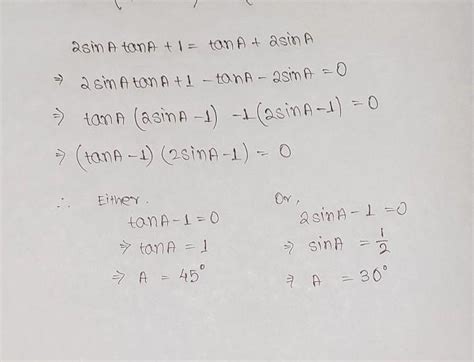 2sinA tanA + 1 = tanA + 2sinA
⇒ 2sinA tanA + 1 - tanA - 2sinA = 0
⇒ tanA (2sinA - 1) - 1(2sinA - 1) = 0
⇒ (tanA - 1) (2sinA - 1) = 0
∴ Either,
tanA - 1 = 0
⇒ tanA = 1
⇒ A = 45°
Or,
2sinA - 1 = 0
⇒ sinA = 1/2
⇒ A = 30°